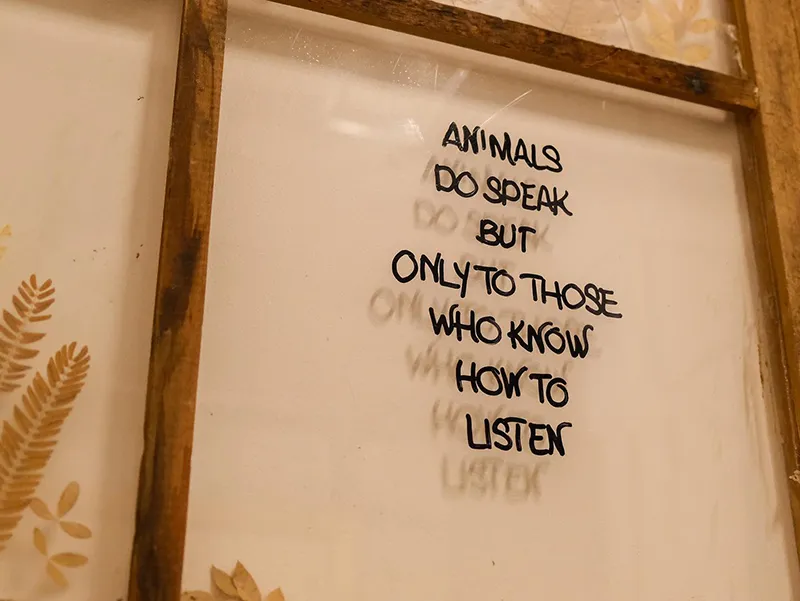 ANIMALS
DO SPEAK
BUT
ONLY TO THOSE
WHO KNOW
HOW TO
LISTEN